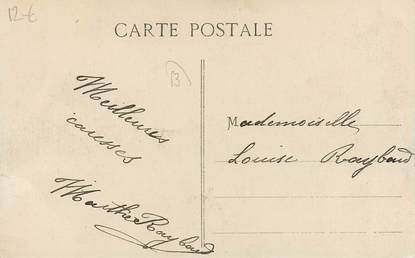 12 €
CARTE POSTALE
13
Meilleures
caresses
Marthe Raybaud
Mademoiselle
Louise Raybaud